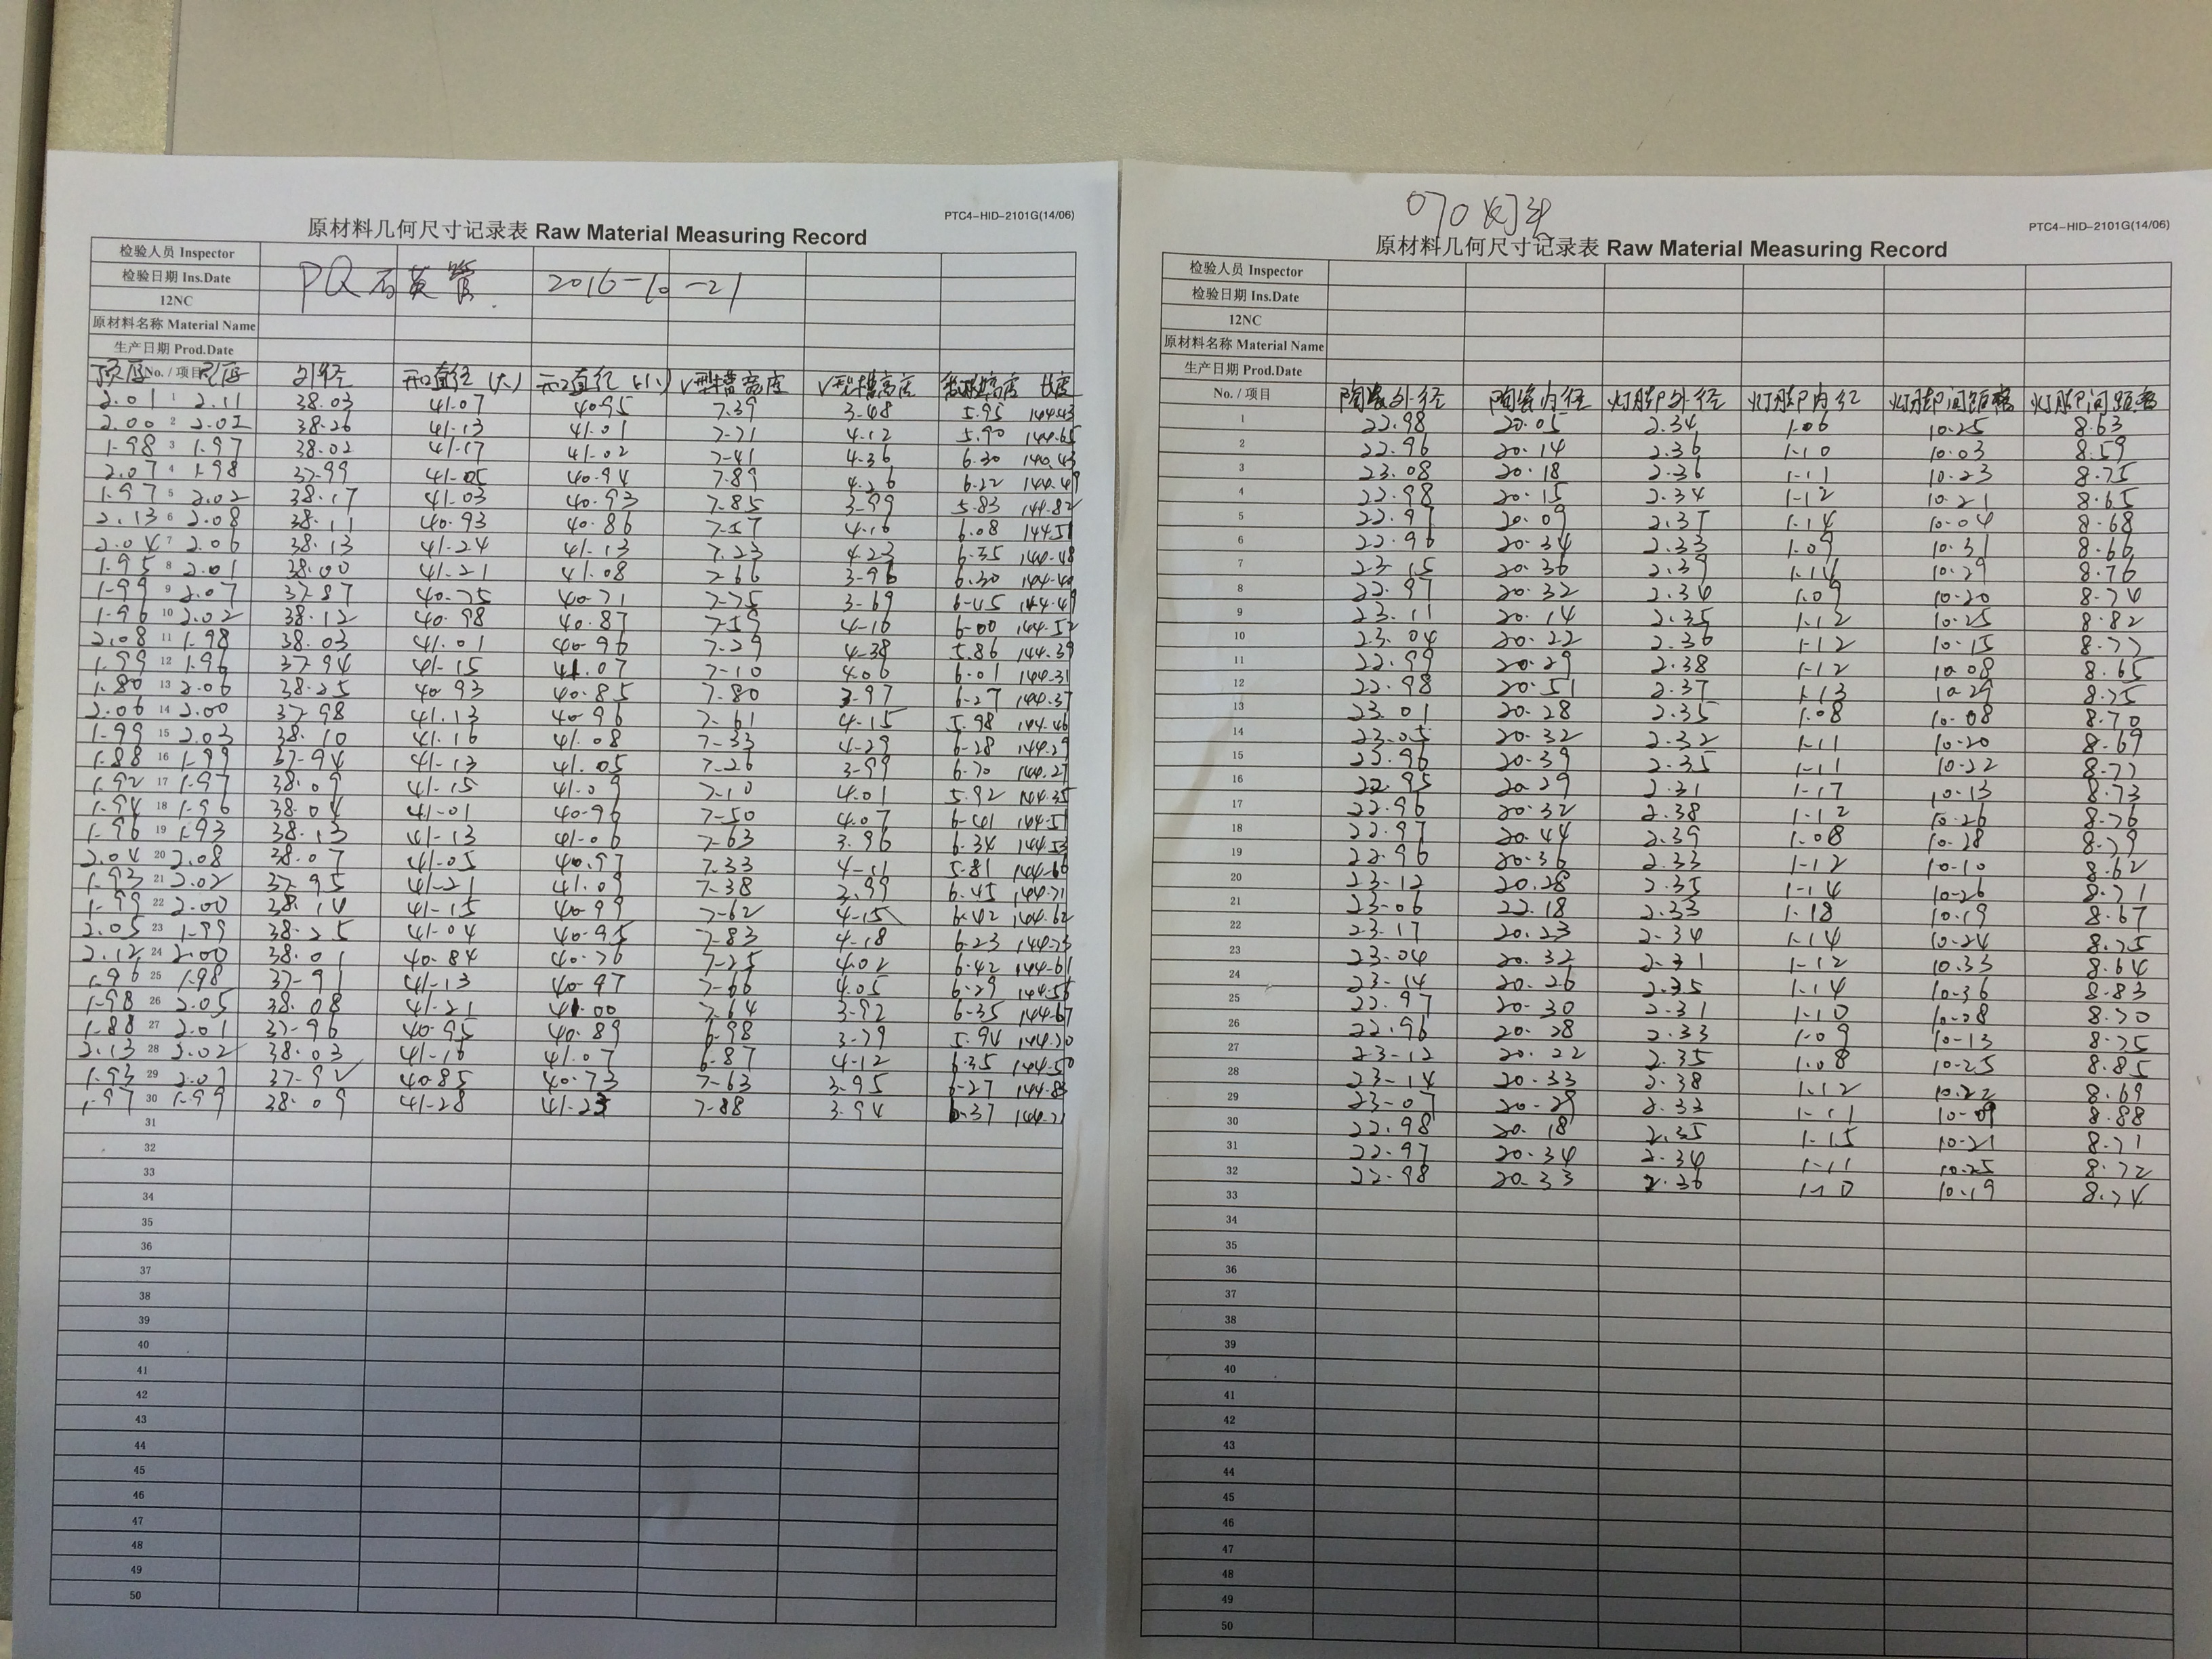 PTC4-HID-2101G(14/06)
原材料几何尺寸记录表 Raw Material Measuring Record
检验人员 Inspector
检验日期 Ins.Date PQ石英管. 2016-10-21
12NC
原材料名称 Material Name
生产日期 Prod.Date
顶厚 No. / 项目 外径 开口直径(大) 开口直径(小) V型槽高度 V型槽高度 高度 长度
2.01 1 2.11 38.03 41.07 40.95 7.39 3.48 5.95 144.43
2.00 2 2.02 38.26 41.13 41.01 7.71 4.12 5.90 144.65
1.98 3 1.97 38.02 41.17 41.02 7.41 4.36 6.30 140.43
2.07 4 1.98 37.99 41.05 40.94 7.89 4.26 6.22 144.49
1.97 5 2.02 38.17 41.03 40.93 7.85 3.99 5.83 144.82
2.13 6 2.08 38.11 40.93 40.86 7.57 4.16 6.08 144.51
2.04 7 2.06 38.13 41.24 41.13 7.23 4.23 6.35 144.48
1.95 8 2.01 38.00 41.21 41.08 7.66 3.96 6.30 144.40
1.99 9 2.07 37.87 40.75 40.71 7.75 3.69 6.45 144.49
1.96 10 2.02 38.12 40.98 40.87 7.59 4.16 6.00 144.52
2.08 11 1.98 38.03 41.01 40.96 7.29 4.38 5.86 144.39
1.99 12 1.96 37.94 41.15 41.07 7.10 4.06 6.01 144.31
1.80 13 2.06 38.25 40.93 40.85 7.80 3.97 6.27 144.37
2.06 14 2.00 37.98 41.13 40.96 7.61 4.15 5.98 144.46
1.99 15 2.03 38.10 41.16 41.08 7.33 4.29 6.28 144.29
1.88 16 1.99 37.94 41.13 41.05 7.26 3.99 6.70 144.27
1.92 17 1.97 38.09 41.15 41.09 7.10 4.01 5.92 144.35
1.94 18 1.96 38.04 41.01 40.96 7.50 4.07 6.41 144.51
1.96 19 1.93 38.13 41.13 41.06 7.63 3.96 6.34 144.53
2.04 20 2.08 38.07 41.05 40.97 7.33 4.11 5.81 144.66
1.93 21 2.02 37.95 41.21 41.09 7.38 3.99 6.45 144.71
1.99 22 2.00 38.14 41.15 40.99 7.62 4.15 6.42 144.62
2.05 23 1.99 38.25 41.04 40.95 7.83 4.18 6.23 144.73
2.12 24 2.00 38.01 40.84 40.76 7.25 4.02 6.42 144.61
1.96 25 1.98 37.91 41.13 40.97 7.66 4.05 6.29 144.56
1.98 26 2.05 38.08 41.21 41.00 7.64 3.92 6.35 144.67
1.88 27 2.01 37.96 40.95 40.89 6.98 3.79 5.94 144.70
2.13 28 2.02 38.03 41.16 41.07 6.87 4.12 6.35 144.50
1.93 29 2.07 37.92 40.85 40.73 7.63 3.95 6.27 144.83
1.97 30 1.99 38.09 41.28 41.23 7.88 3.94 6.37 144.71
31
32
33
34
35
36
37
38
39
40
41
42
43
44
45
46
47
48
49
50
070灯头
PTC4-HID-2101G(14/06)
原材料几何尺寸记录表 Raw Material Measuring Record
检验人员 Inspector
检验日期 Ins.Date
12NC
原材料名称 Material Name
生产日期 Prod.Date
No. / 项目 陶瓷外径 陶瓷内径 灯脚外径 灯脚内径 灯脚间距 灯脚间距
1 22.98 20.05 2.34 1.06 10.25 8.63
2 22.96 20.14 2.36 1.10 10.03 8.59
3 23.08 20.18 2.36 1.11 10.23 8.75
4 22.98 20.15 2.34 1.12 10.21 8.65
5 22.97 20.09 2.37 1.14 10.04 8.68
6 22.96 20.34 2.33 1.09 10.31 8.66
7 23.15 20.36 2.39 1.14 10.29 8.76
8 22.97 20.32 2.34 1.09 10.20 8.74
9 23.11 20.14 2.35 1.12 10.25 8.82
10 23.04 20.22 2.36 1.12 10.15 8.77
11 22.99 20.29 2.38 1.12 10.08 8.65
12 22.98 20.51 2.37 1.13 10.29 8.75
13 23.01 20.28 2.35 1.08 10.08 8.70
14 23.05 20.32 2.32 1.11 10.20 8.69
15 22.96 20.39 2.35 1.11 10.22 8.77
16 22.95 20.29 2.31 1.17 10.13 8.73
17 22.96 20.32 2.38 1.12 10.26 8.76
18 22.97 20.44 2.39 1.08 10.28 8.79
19 22.96 20.36 2.33 1.12 10.10 8.62
20 23.12 20.28 2.35 1.14 10.26 8.71
21 23.06 22.18 2.33 1.18 10.19 8.67
22 23.17 20.23 2.34 1.14 10.24 8.75
23 23.04 20.32 2.31 1.12 10.33 8.64
24 23.14 20.26 2.35 1.14 10.36 8.83
25 22.97 20.30 2.31 1.10 10.28 8.70
26 22.96 20.28 2.33 1.09 10.13 8.75
27 23.12 20.22 2.35 1.08 10.25 8.85
28 23.14 20.33 2.38 1.12 10.22 8.69
29 23.07 20.29 2.33 1.11 10.09 8.88
30 22.98 20.18 2.35 1.15 10.21 8.71
31 22.97 20.34 2.34 1.11 10.25 8.72
32 22.98 20.33 2.36 1.10 10.19 8.74
33
34
35
36
37
38
39
40
41
42
43
44
45
46
47
48
49
50